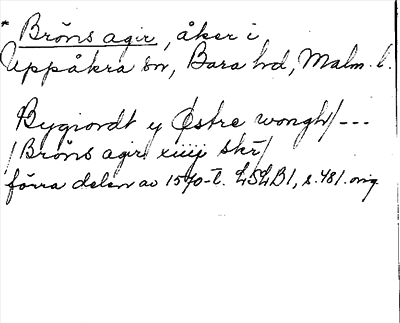 * Bröns agir, åker i
Uppåkra sn, Bara hd, Malm. l.
Bygiordt y Østre wongh/---
/Bröns agir xiiij skr/
förra delen av 1570-t. LSLB1, s. 481. orig